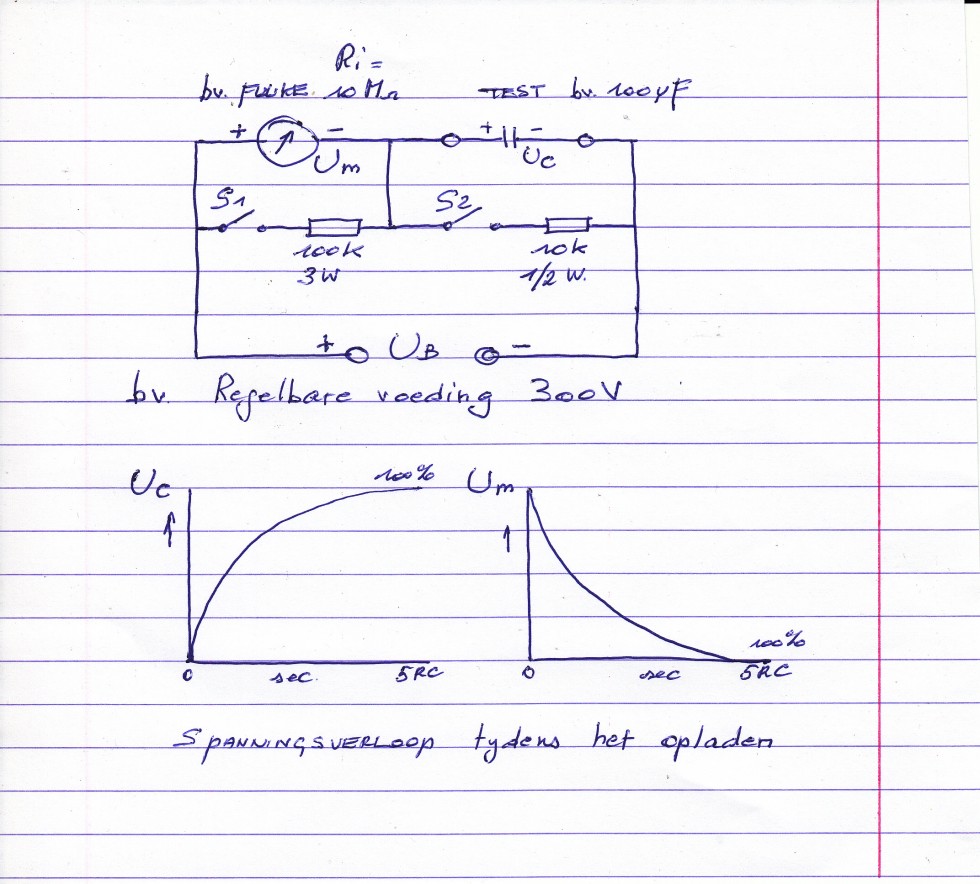 Ri =
bv. FLUKE 10 MΩ TEST bv. 100µF
+ - + -
Um Uc
S1 S2
100k 10k
3W 1/2 W.
+ UB -
bv. Regelbare voeding 300V
Uc 100% Um
100%
0 sec. 5RC 0 sec 5RC
SPANNINGSVERLOOP tydens het opladen